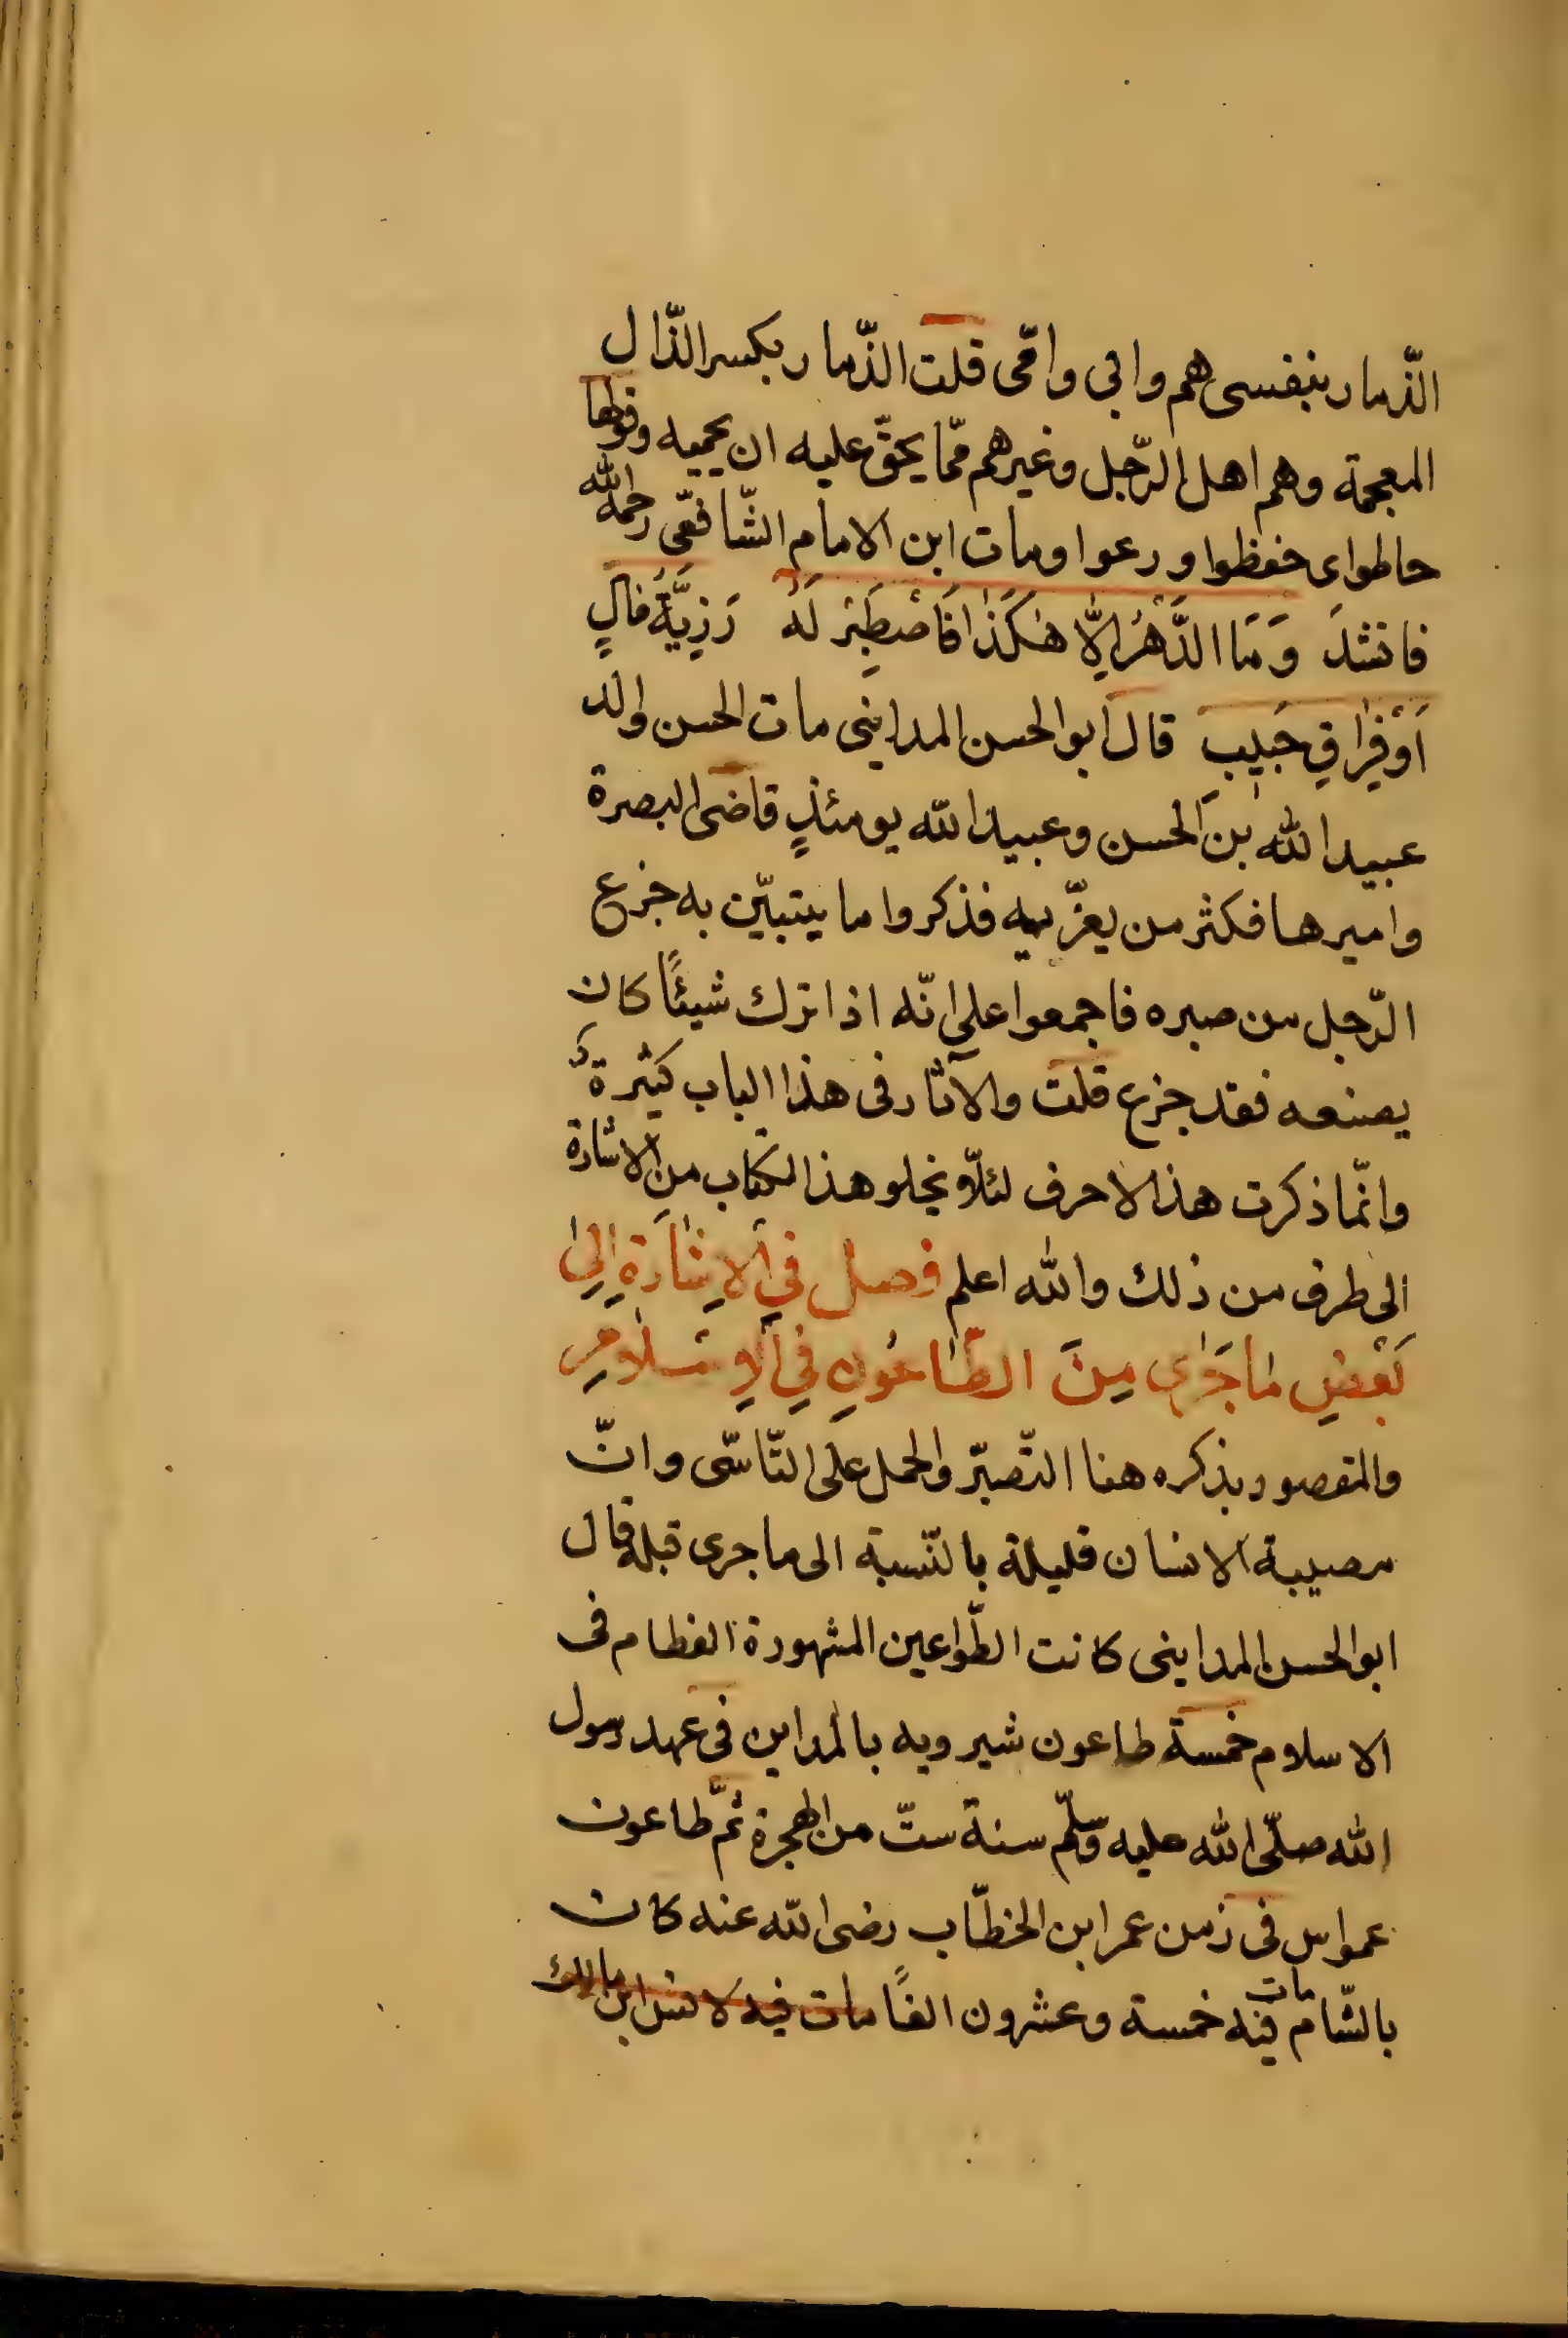 الذّمار بنفسى هم وابي وامّى قلت الذّمار بكسر الذّال
المعجمة وهم اهل الرّجل وغيرهم ممّا يحقّ عليه ان يحميه وقولها
حاطوا اى حفظوا ورعوا ومات ابن الامام الشّافعّى رحمه الله
فانشدَ وَمَا الدَّهْرُ اِلَّا هٰكَذَا فَاصْطَبِرْ لَهُ رَزِيَّةُ مَالٍ
اَوْفِرَاقِ حَبِيبٍ قال ابو الحسن المدايني مات الحسن والد
عبيد الله بن الحسن وعبيد الله يومئذٍ قاضى البصرة
واميرها فكثر من يعزّيه فذكروا ما يتبيّن به جزع
الرّجل من صبره فاجمعوا على انّه اذا ترك شيئًا كان
يصنعه فقد جزع قلت والآثار فى هذا الباب كثيرة
وانّما ذكرت هذ الاحرف لئلّا يخلو هذ الكتاب من الاشارة
الى طرف من ذلك والله اعلم فصل فِي الْاِشَارَةِ اِلىٰ
بَعْضِ مٰا جَرٰى مِنَ الطّٰاعُونِ فِي الْاِسْلٰامِ
والمقصود بذكره هنا التّصبّر والحمل على التّاسّى وانّ
مصيبة الانسان قليلة بالنّسبة الى ما جرى قبله قال
ابو الحسن المدايني كانت الطّواعين المشهورة العظام فى
الاسلام خمسة طاعون شيرويه بالمداين فى عهد رسول
الله صلّى الله عليه وسلّم سنة ستّ من الهجرة ثمّ طاعون
عمواس فى زمن عمر ابن الخطّاب رضى الله عنه كان
بالشّام مات فيه خمسة وعشرون الفًا مات فيه لانس ابن مالك